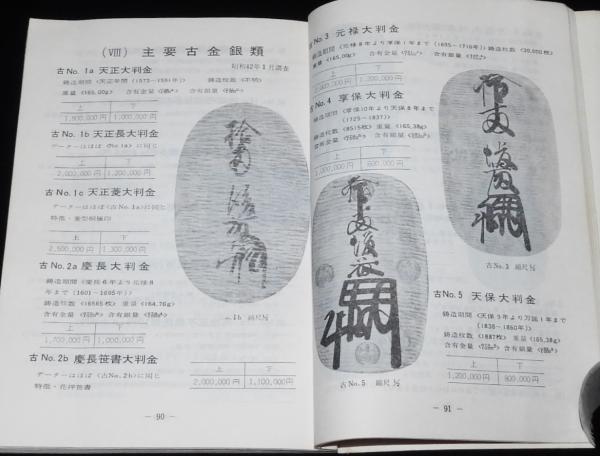 (Ⅷ) 主要古金銀類
昭和42年1月調査
古No.1a 天正大判金
鋳造期間〈天正年間(1573―1591年)〉 鋳造枚数〈不明〉
重量〈165.00g〉 含有金量 含有銀量
上 下
1,800,000円 1,000,000円
古No.1b 天正長大判金
データーはほぼ〈古No.1a〉に同じ
上 下
2,000,000円 1,200,000円
古No.1c 天正菱大判金
データーはほぼ〈古No.1a〉に同じ
特徴・菱型桐極印
上 下
2,500,000円 1,300,000円
古No.2a 慶長大判金
鋳造期間〈慶長6年より元禄8
年まで(1601―1695年)〉
鋳造枚数〈16565枚〉 重量〈164.76g〉
含有金量 含有銀量
上 下
1,700,000円 1,000,000円
古No.2b 慶長笹書大判金
データーはほぼ〈古No.2b〉に同じ
特徴・花押笹書
上 下
2,000,000円 1,100,000円
1b 縮尺½
― 90 ―
古No.3 元禄大判金
鋳造期間〈元禄8年より享保1年まで(1695―1716年)〉 鋳造枚数
重量〈165.00g〉 含有金量 含有銀量
上 下
1,200,000円
古No.4 享保大判金
鋳造期間〈享保10年より天保8年まで
(1725―1837)〉
鋳造枚数〈8515枚〉 重量〈165.38g〉
含有金量 含有銀量
上 下
600,000円
古No.3 縮尺½
古No.5 縮尺½
古No.5 天保大判金
鋳造期間〈天保9年より万延1年まで
(1838―1860年)〉
鋳造枚数〈1887枚〉 重量〈165.38g〉
含有金量 含有銀量
上 下
1,200,000円 800,000円
― 91 ―